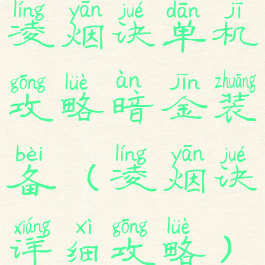 líng yān jué dān jī
凌烟诀单机
gōng lüè àn jīn zhuāng
攻略暗金装
bèi líng yān jué
备（凌烟诀
xiáng xì gōng lüè
详细攻略）